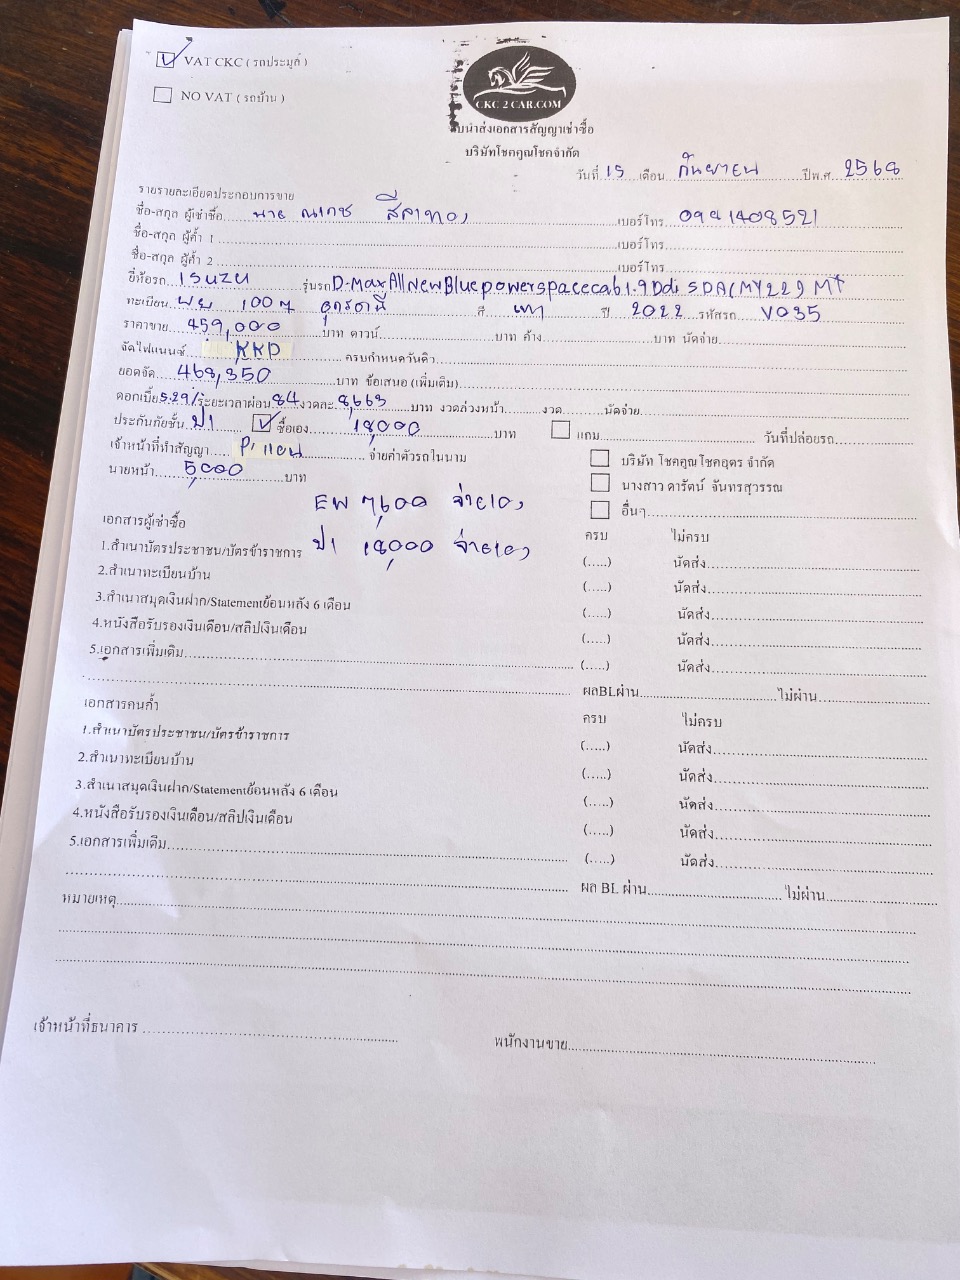 VAT CKC ( รถประมูล )
NO VAT ( รถบ้าน )
CKC 2 CAR.COM
ใบนำส่งเอกสารสัญญาเช่าซื้อ
บริษัทโชคคูณโชคจำกัด
วันที่ 15 เดือน กันยายน ปีพ.ศ 2568
รายรายละเอียดประกอบการขาย
ชื่อ-สกุล ผู้เช่าซื้อ นาย ณเดช สีลาทอง เบอร์โทร 0981408521
ชื่อ-สกุล ผู้ค้ำ 1 เบอร์โทร
ชื่อ-สกุล ผู้ค้ำ 2 เบอร์โทร
ยี่ห้อรถ ISUZU รุ่นรถ D-Max All New Blue power spacecab 1.9 Ddi S DA (MY22) MT
ทะเบียน 1007 อุดรธานี สี เทา ปี 2022 รหัสรถ V035
ราคาขาย 459,000 บาท ดาวน์ บาท ค้าง บาท นัดจ่าย
จัดไฟแนนซ์ KKP ครบกำหนดวันคิว
ยอดจัด 468,350 บาท ข้อเสนอ (เพิ่มเติม)
ดอกเบี้ย 5.29% ระยะเวลาผ่อน 84 งวดละ 8,663 บาท งวดล่วงหน้า งวด นัดจ่าย
ประกันภัยชั้น ป1 ซื้อเอง 18,000 บาท แถม วันที่ปล่อยรถ
เจ้าหน้าที่ทำสัญญา P'แอน จ่ายค่าตัวรถในนาม บริษัท โชคคูณโชคอุดร จำกัด
นายหน้า 5,000 บาท นางสาว ดารัตน์ จันทรสุวรรณ
EW 7,600 จ่ายเอง อื่นๆ
เอกสารผู้เช่าซื้อ ครบ ไม่ครบ
1.สำเนาบัตรประชาชน/บัตรข้าราชการ ป1 18,000 จ่ายเอง (.....) นัดส่ง
2.สำเนาทะเบียนบ้าน (.....) นัดส่ง
3.สำเนาสมุดเงินฝาก/Statementย้อนหลัง 6 เดือน (.....) นัดส่ง
4.หนังสือรับรองเงินเดือน/สลิปเงินเดือน (.....) นัดส่ง
5.เอกสารเพิ่มเติม (.....) นัดส่ง
ผลBLผ่าน ไม่ผ่าน
เอกสารคนค้ำ ครบ ไม่ครบ
1.สำเนาบัตรประชาชน/บัตรข้าราชการ (.....) นัดส่ง
2.สำเนาทะเบียนบ้าน (.....) นัดส่ง
3.สำเนาสมุดเงินฝาก/Statementย้อนหลัง 6 เดือน (.....) นัดส่ง
4.หนังสือรับรองเงินเดือน/สลิปเงินเดือน (.....) นัดส่ง
5.เอกสารเพิ่มเติม (.....) นัดส่ง
ผล BL ผ่าน ไม่ผ่าน
หมายเหตุ
เจ้าหน้าที่ธนาคาร พนักงานขาย